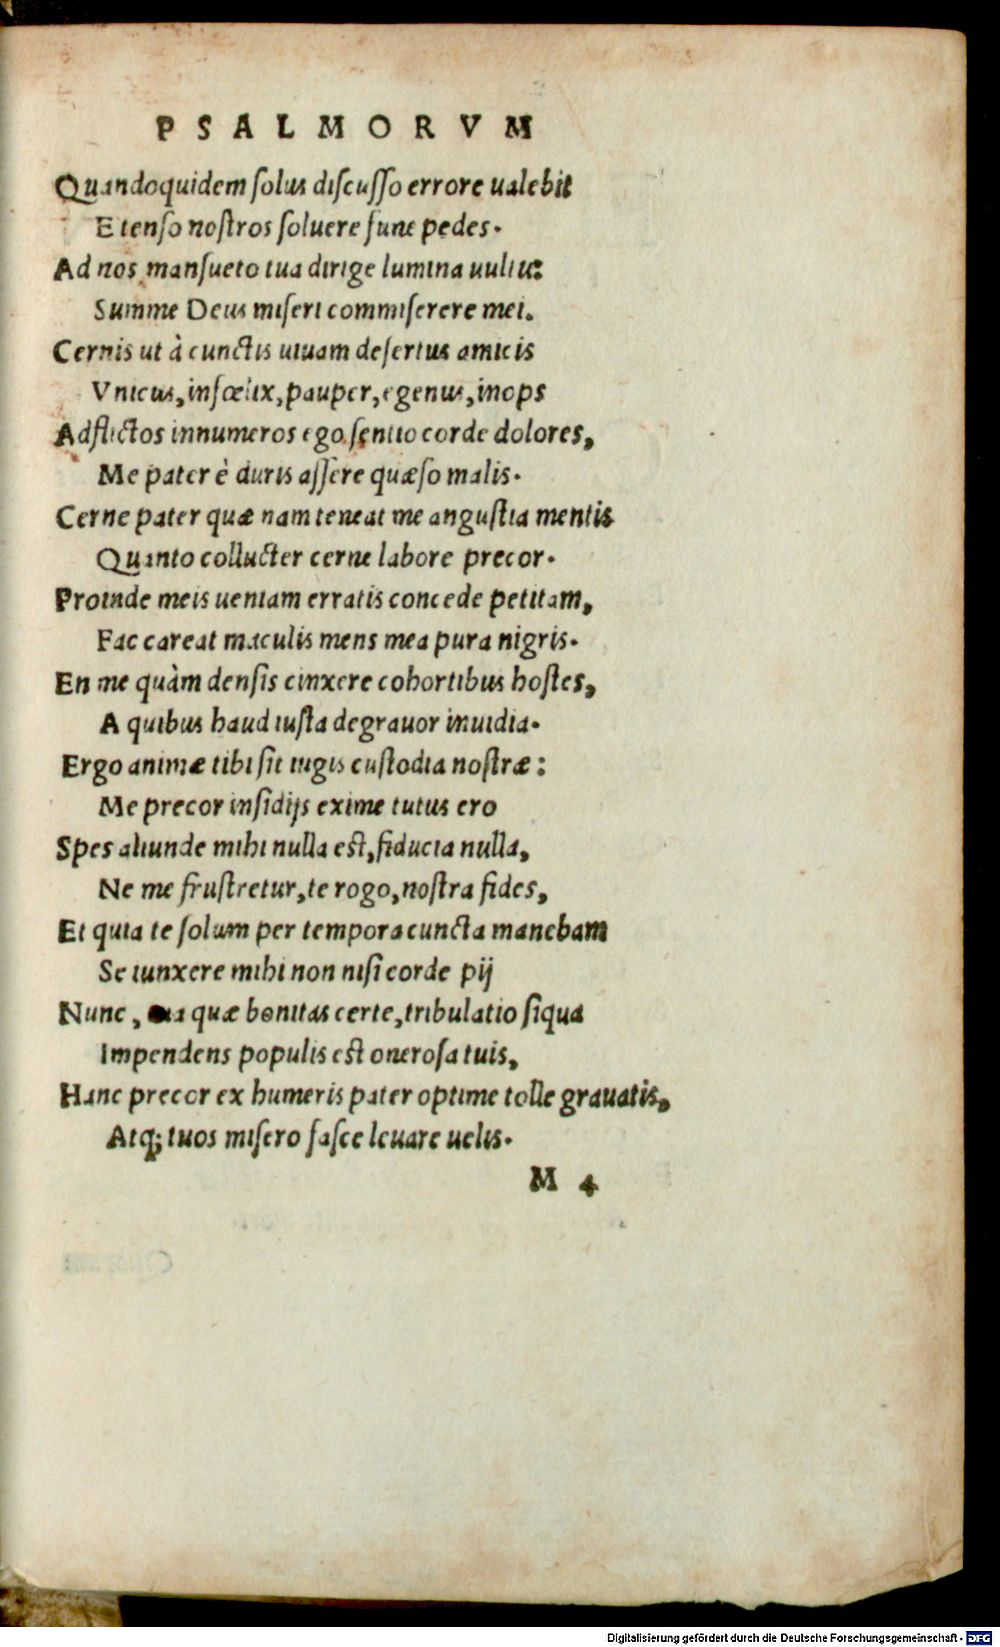 PSALMORVM
Quandoquidem ſolus diſcuſſo errore ualebit
E tenſo noſtros ſoluere fune pedes.
Ad nos manſueto tua dirige lumina uultu:
Summe Deus miſeri commiſerere mei.
Cernis ut à cunctis uiuam deſertus amicis
Vnicus, infœlix, pauper, egenus, inops
Adflictos innumeros ego ſentio corde dolores,
Me pater è duris aſſere quæſo malis.
Cerne pater quæ nam teneat me anguſtia mentis
Quanto collucter cerne labore precor.
Proinde meis ueniam erratis concede petitam,
Fac careat maculis mens mea pura nigris.
En me quàm denſis cinxere cohortibus hoſtes,
A quibus haud iuſta degrauor inuidia.
Ergo animæ tibi ſit iugis cuſtodia noſtræ:
Me precor inſidijs exime tutus ero
Spes aliunde mihi nulla eſt, fiducia nulla,
Ne me fruſtretur, te rogo, noſtra fides,
Et quia te ſolum per tempora cuncta manebam
Se iunxere mihi non niſi corde pij
Nunc, quæ bonitas certe, tribulatio ſiqua
Impendens populis eſt oneroſa tuis,
Hanc precor ex humeris pater optime tolle grauatis,
Atq; tuos miſero faſce leuare uelis.
M 4
Digitalisierung gefördert durch die Deutsche Forschungsgemeinschaft - DFG